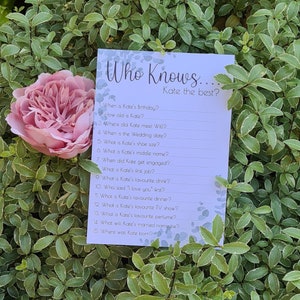 Who Knows...
Kate the best?
1. When is Kate's birthday?
2. How old is Kate?
3. Where did Kate meet Will?
4. When is the Wedding date?
5. What is Kate's shoe size?
6. What is Kate's middle name?
7. When did Kate get engaged?
8. What is Kate's first job?
9. What is Kate's favourite drink?
10. Who said "I love you" first?
11. What is Kate's favourite dinner?
12. What is Kate's favourite TV show?
13. What is Kate's favourite perfume?
14. What was Kate's married name?
15. Where was Kate born?